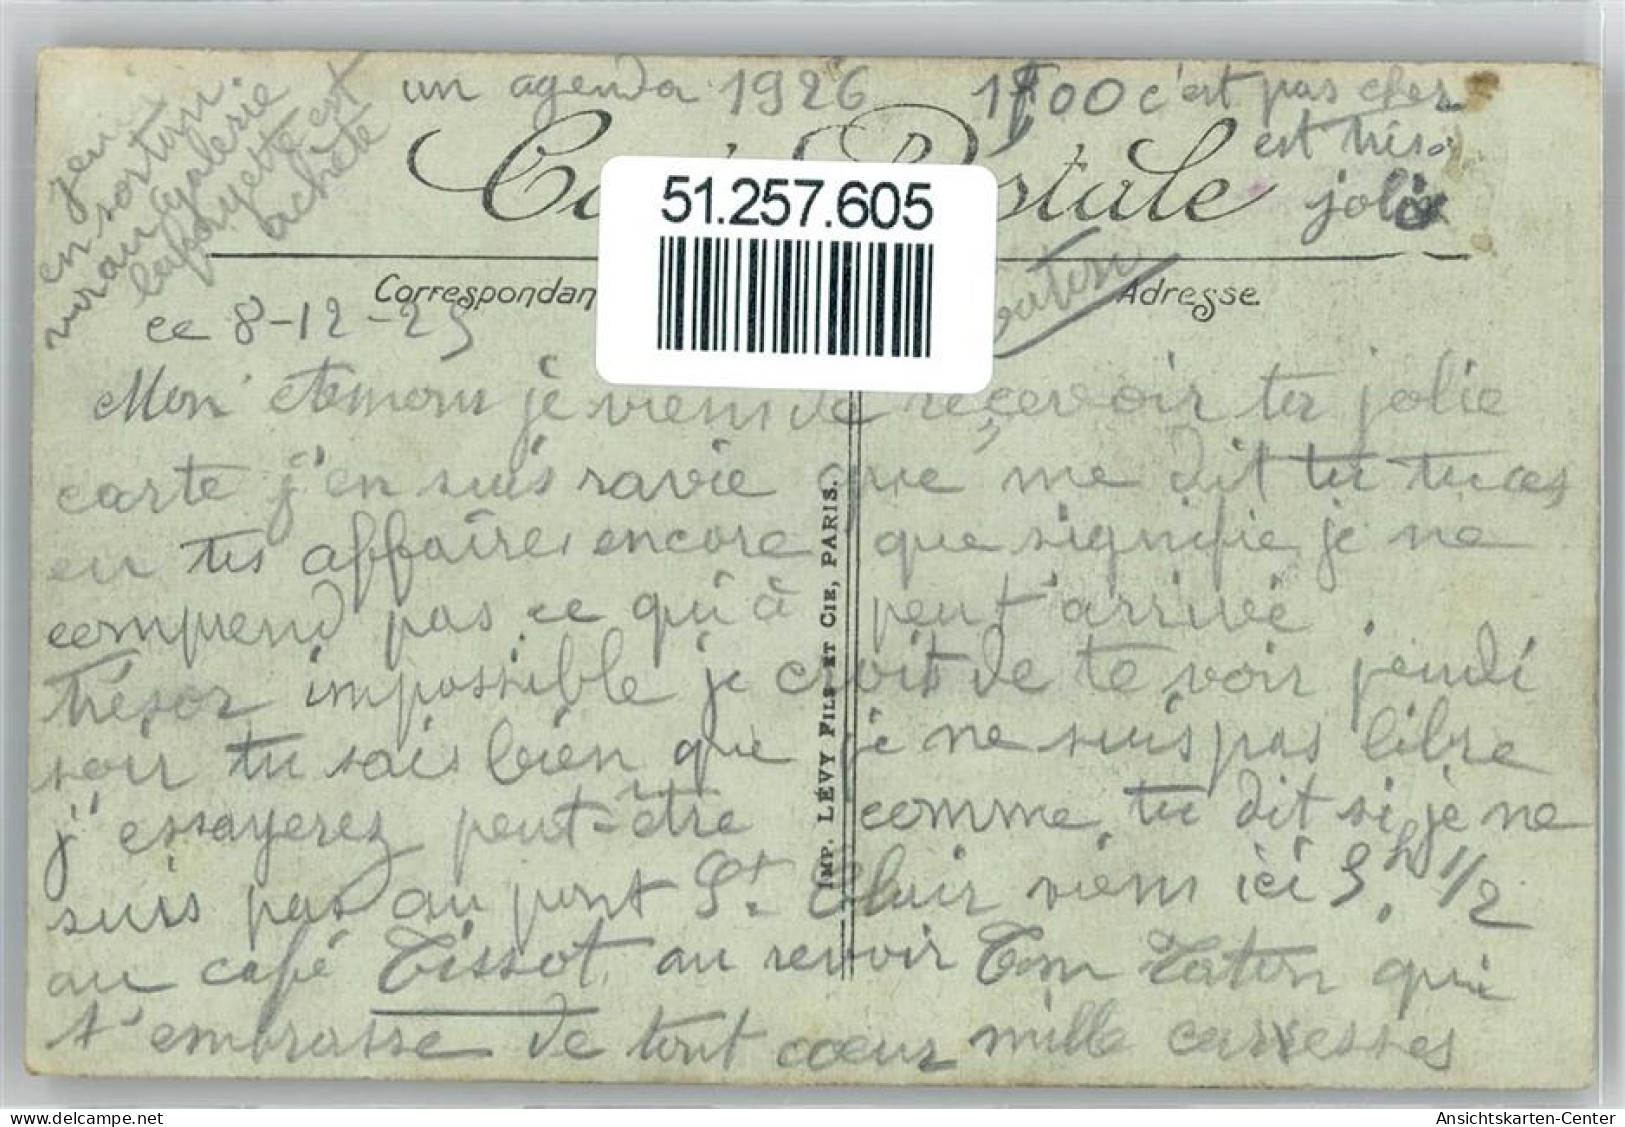 un agenda 1926 1f00 c'est pas cher
est très
jolie
en sortan
au galerie
lafayette est
achète
Carte Postale
51.257.605
Correspondan
Adresse
ce 8-12-25
Mon je viens de reçevoir ta jolie
carte j'en suis ravie que me dit tu tu as
eu tes affaires encore que signifie je ne
comprend pas ce qu'à peut t'arrivé.
trésor impossible je croit de te voir jeudi
soir tu sais bien que je ne suis pas libre
j'essayerez peut-être comme tu dit si je ne
suis pas au pont St. Clair viens ici 5h 1/2
au café Tissot au revoir Ton Taton qui
t'embrasse de tout cœur mille carresses
IMP. LÉVY FILS ET CIE, PARIS.
Ansichtskarten-Center
www.delcampe.net